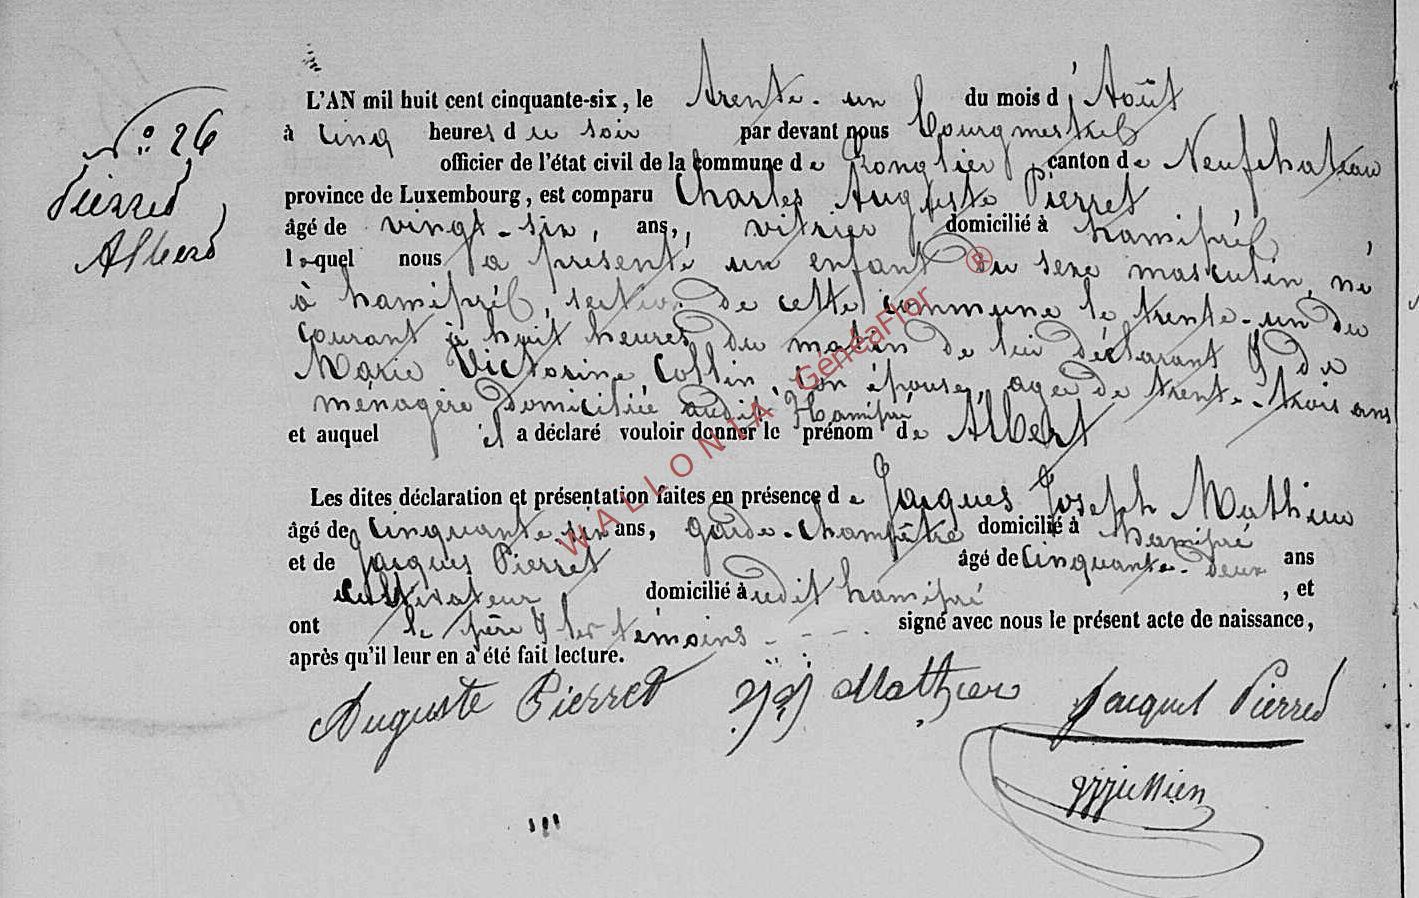 N° 26
Pierret
Albert
L'AN mil huit cent cinquante-six, le trente-un du mois d'Août
à cinq heures du soir par devant nous Bourgmestre
officier de l'état civil de la commune de Longlier canton de Neufchateau
province de Luxembourg, est comparu Charles Auguste Pierret
âgé de vingt-six, ans, vitrier domicilié à hamipré,
lequel nous a présenté un enfant du sexe masculin, né
à hamipré, section de cette commune le trente-un du
courant à huit heures du matin de lui déclarant & de
Marie Victorine Collin, son épouse, agée de trente-trois ans
ménagère domiciliée audit Hamipré
et auquel il a déclaré vouloir donner le prénom de Albert
Les dites déclaration et présentation faites en présence de Jacques Joseph Mathieu
âgé de cinquante-six ans, garde-champêtre domicilié à hamipré
et de Jacques Pierret âgé de cinquante-deux ans
cultivateur domicilié audit hamipré, et
ont le père & les témoins signé avec nous le présent acte de naissance,
après qu'il leur en a été fait lecture.
Auguste Pierret JJ Mathieu Jacques Pierret
WALLONIA GénéaFlor ®